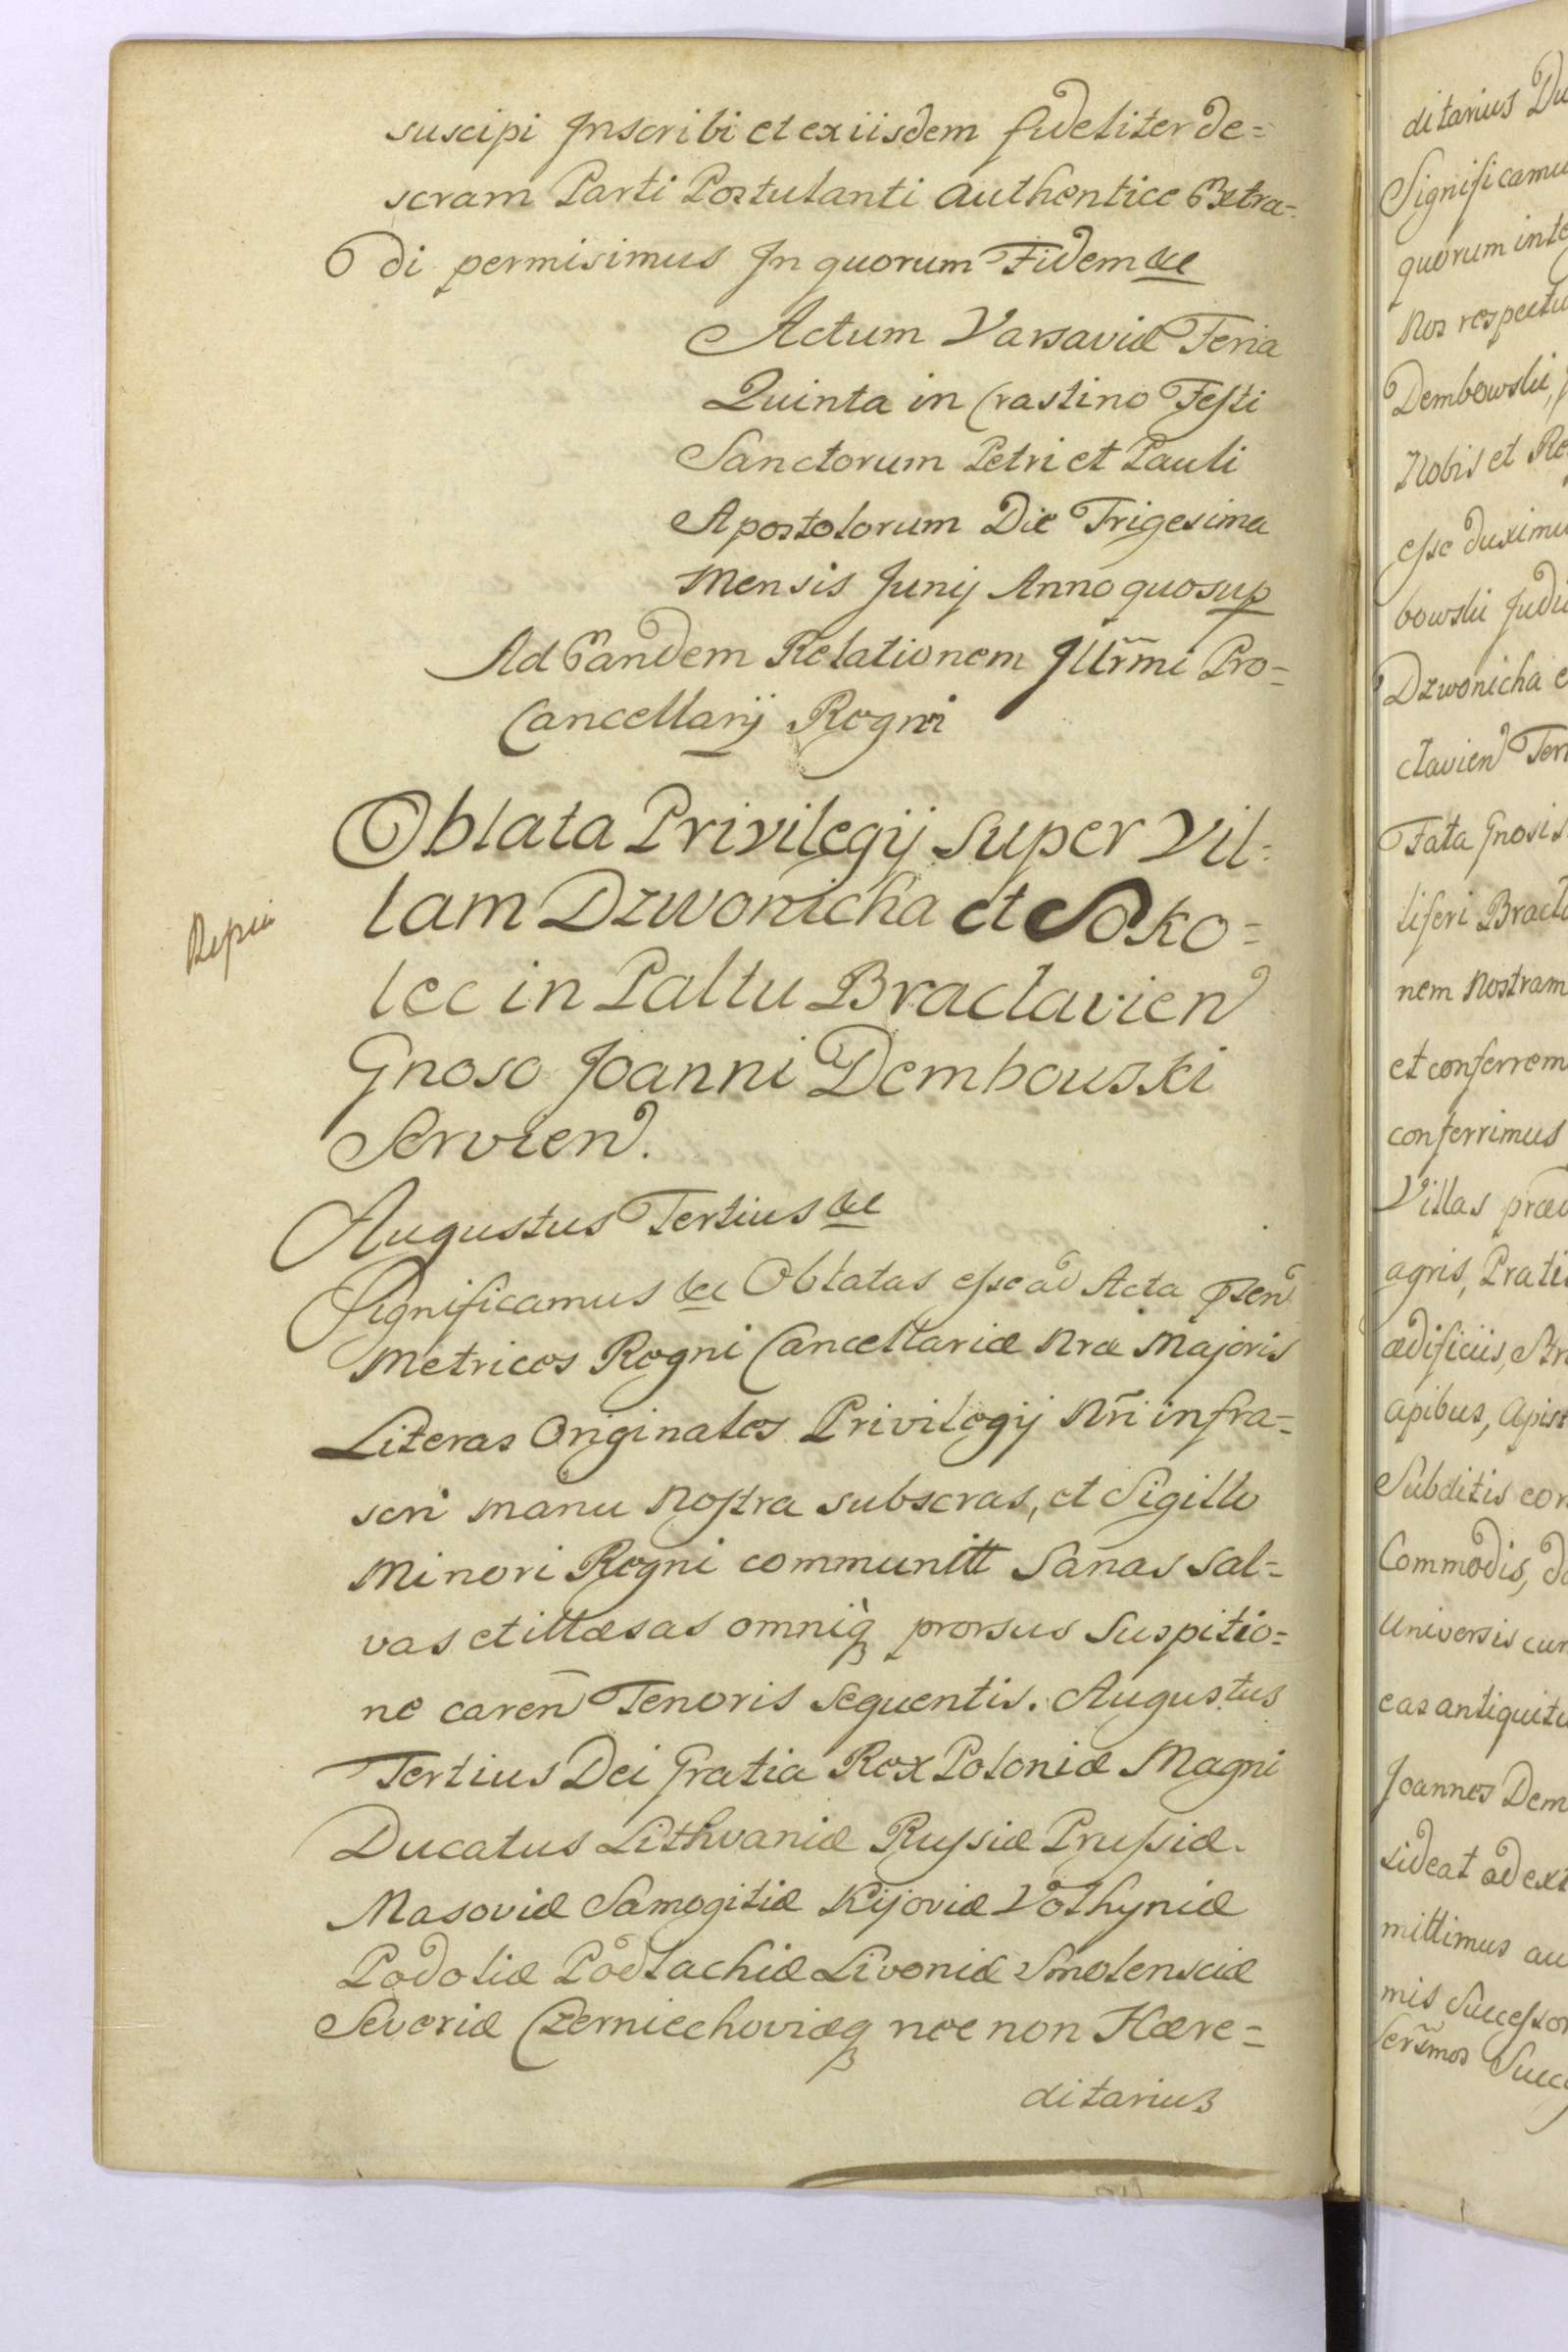 suscipi Inscribi et ex iisdem fideliter de=
scram Parti Postulanti authentice Extra=
di permisimus In quorum Fidem &c
Actum Varsaviæ Feria
Quinta in Crastino Festi
Sanctorum Petri et Pauli
Apostolorum Die Trigesima
Mensis Junij Anno quo sup
Ad Eandem Relationem Illr̃mi Pro=
Cancellarij Regni
Oblata Privilegij super Vil=
lam Dzwonicha et Soko=
lec in Paltu Braclavien
Gnoso Joanni Dembowski
Servien.
Augustus Tertius &c
Significamus &c Oblatas esse ad Acta p̃sen
Metrices Regni Cancellariæ Nræ Majoris
Literas Originales Privilegij Nr̃i infra=
scri manu Nostra subscras, et Sigillo
Minori Regni communitt Sanas Sal=
vas et illæsas omniq̀ prorsus Suspitio=
ne caren̄ Tenoris Sequentis. Augustus
Tertius Dei Gratia Rex Poloniæ Magni
Ducatus Lithvaniæ Russiæ Prussiæ
Masoviæ Samogitiæ Kijoviæ Volhyniæ
Podoliæ Podlachiæ Livoniæ Smolensciæ
Severiæ Czerniechoviæq nec non Hære=
ditarius
ditarius Du
Significamu
quorum inte
Nos respectu
Dembowski,
Nobis et Re
esse duximu
bowski Judi
Dzwonicha e
clavien Ter
Fata Gnosis
liferi Bracl
nem Nostram
et conferrem
conferrimus
Villas præ
agris, Prati
ædificiis, Str
apibus, Apist
Subditis cor
Commodis, d
Universis cu
eas antiquitu
Joannes Dem
sideat ad ext
mittimus au
mis Successor
Serm̃os Succ